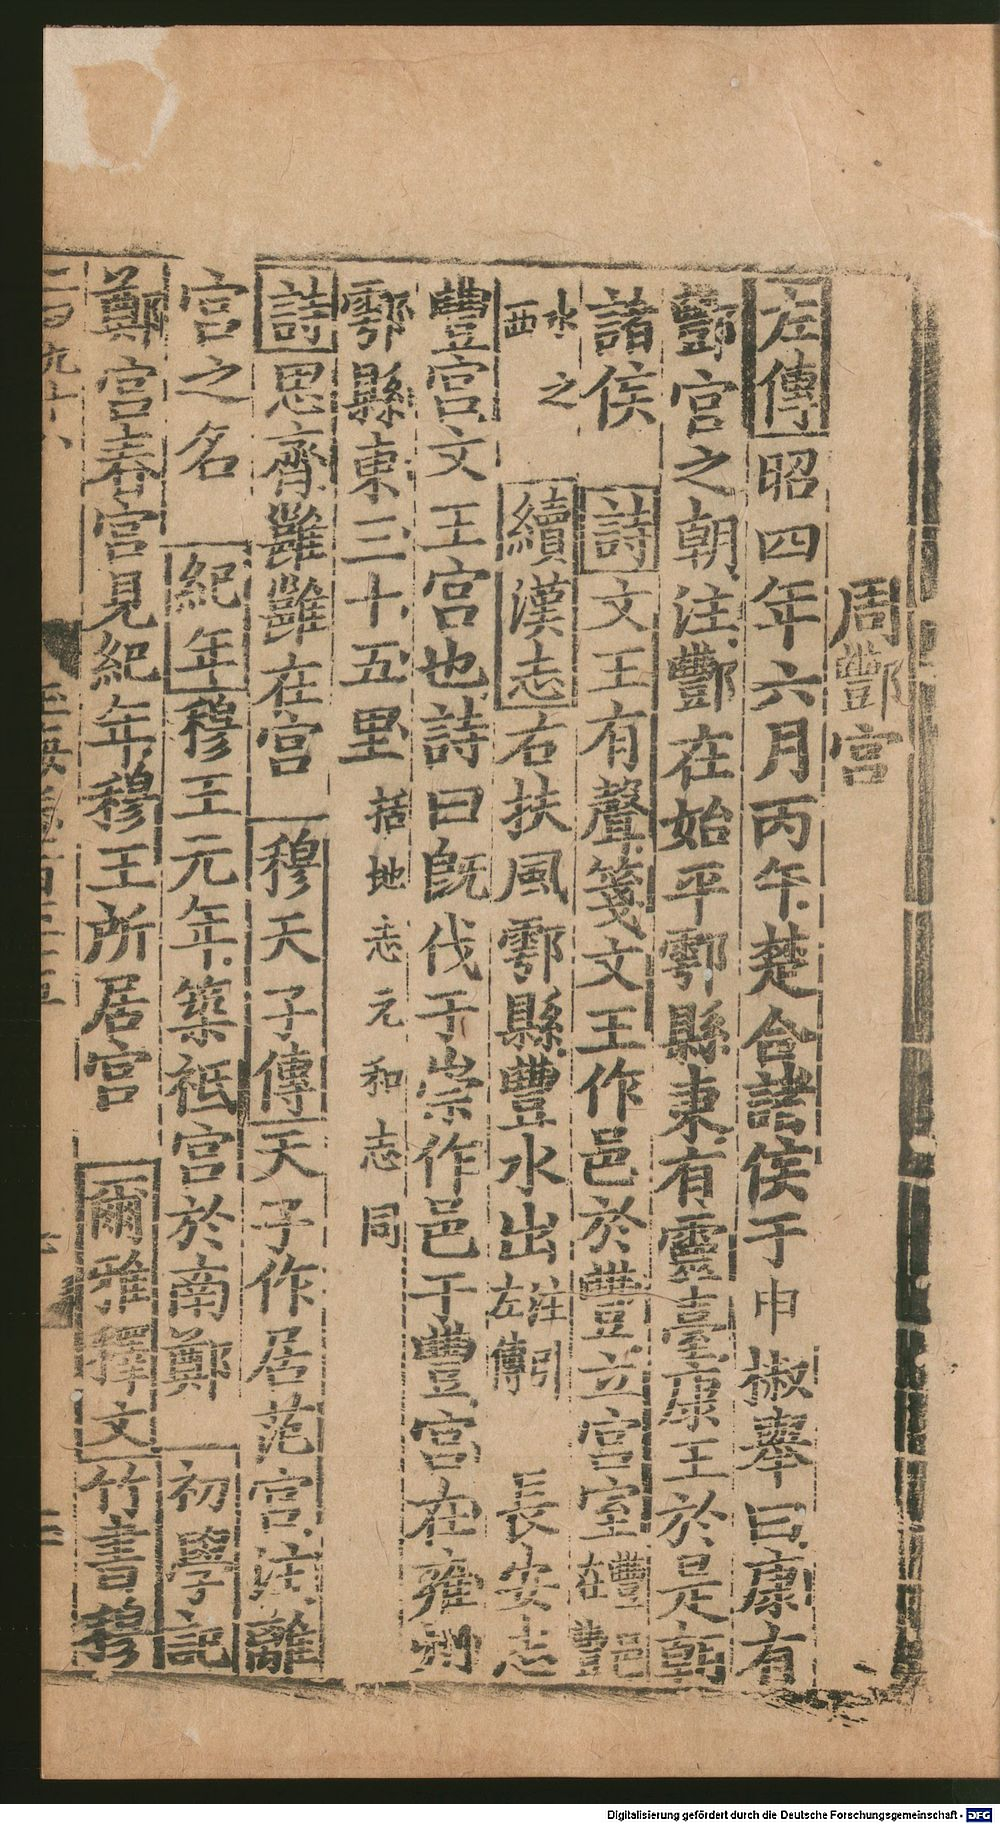 周酆宮
左傳昭四年六月丙午楚合諸侯于申椒舉曰康有
酆宮之朝注酆在始平鄠縣東有靈臺康王於是朝
諸侯 詩文王有聲箋文王作邑於豐立宮室豐邑在豐
水之西 續漢志右扶風鄠縣豐水出注引左傳 長安志
豐宮文王宮也詩曰既伐于崇作邑于豐宮在雍州
鄠縣東三十五里括地志元和志同
詩思齊雝雝在宮 穆天子傳天子作居范宮注離
宮之名 紀年穆王元年築祗宮於南鄭 初學記
鄭宮春宮見紀年穆王所居宮 爾雅釋文竹書穆
Digitalisierung gefördert durch die Deutsche Forschungsgemeinschaft - DFG